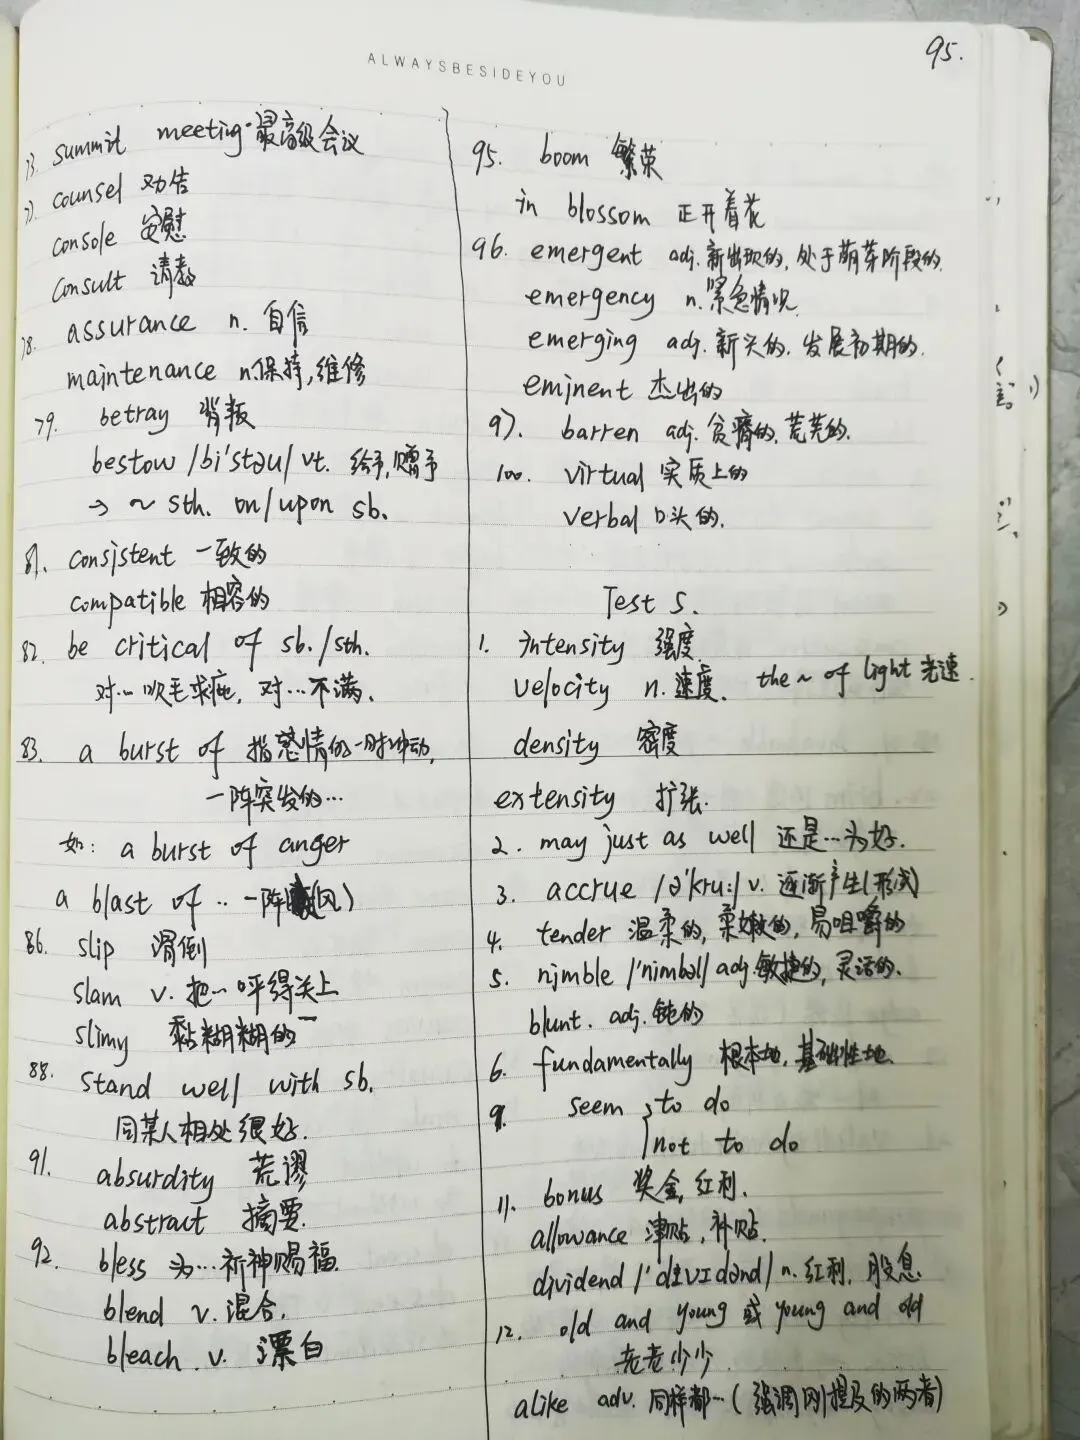 ALWAYSBESIDEYOU
95.
summit meeting·最高级会议
counsel 劝告
console 安慰
consult 请教
78. assurance n. 自信
maintenance n.保持,维修
79. betray 背叛
bestow /bi'stəu/ vt. 给予,赠予
→ ~ sth. on/upon sb.
81. consistent 一致的
compatible 相容的
82. be critical of sb./sth.
对…吹毛求疵, 对…不满.
83. a burst of 指感情的一时冲动,
一阵突发的…
如: a burst of anger
a blast of ‥一阵(风)
86. slip 滑倒
slam v. 把…呯得关上
slimy 黏糊糊的
88. stand well with sb.
同某人相处很好.
91. absurdity 荒谬
abstract 摘要.
92. bless 为…祈神赐福.
blend v. 混合.
bleach. v. 漂白
95. boom 繁荣
in blossom 正开着花
96. emergent adj.新出现的, 处于萌芽阶段的.
emergency n.紧急情况.
emerging adj. 新兴的. 发展初期的.
eminent 杰出的
97. barren adj. 贫瘠的, 荒芜的.
100. virtual 实质上的
verbal 口头的.
Test 5.
1. intensity 强度.
velocity n. 速度. the ~ of light 光速.
density 密度
extensity 扩张.
2. may just as well 还是…为好.
3. accrue /ə'kru:/ v. 逐渐产生(形成)
4. tender 温柔的, 柔嫩的, 易咀嚼的
5. nimble /'nimbəl/ adj.敏捷的, 灵活的.
blunt. adj. 钝的
6. fundamentally 根本地, 基础性地.
9. seem to do
not to do
11. bonus 奖金, 红利.
allowance 津贴, 补贴.
dividend /'dɪvɪdənd/ n. 红利, 股息.
12. old and young 或 young and old
老老少少.
alike adv. 同样都…( 强调刚提及的两者)